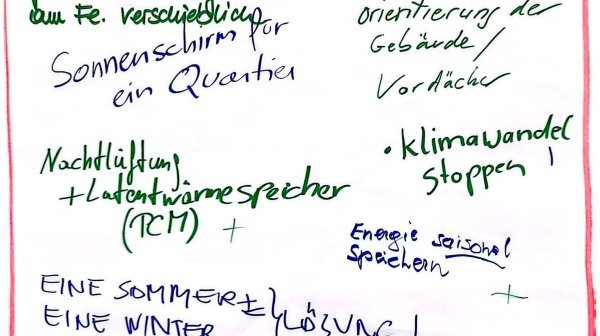 am Fe. verschieblich
Sonnenschirm für
ein Quartier
orientierung der
Gebäude/
Vordächer
Nachtlüftung
+ Latentwärmespeicher
(PCM) +
• klimawandel
stoppen !
Energie saisonal
speichern
+
EINE SOMMER +
EINE WINTER } LÖSUNG!